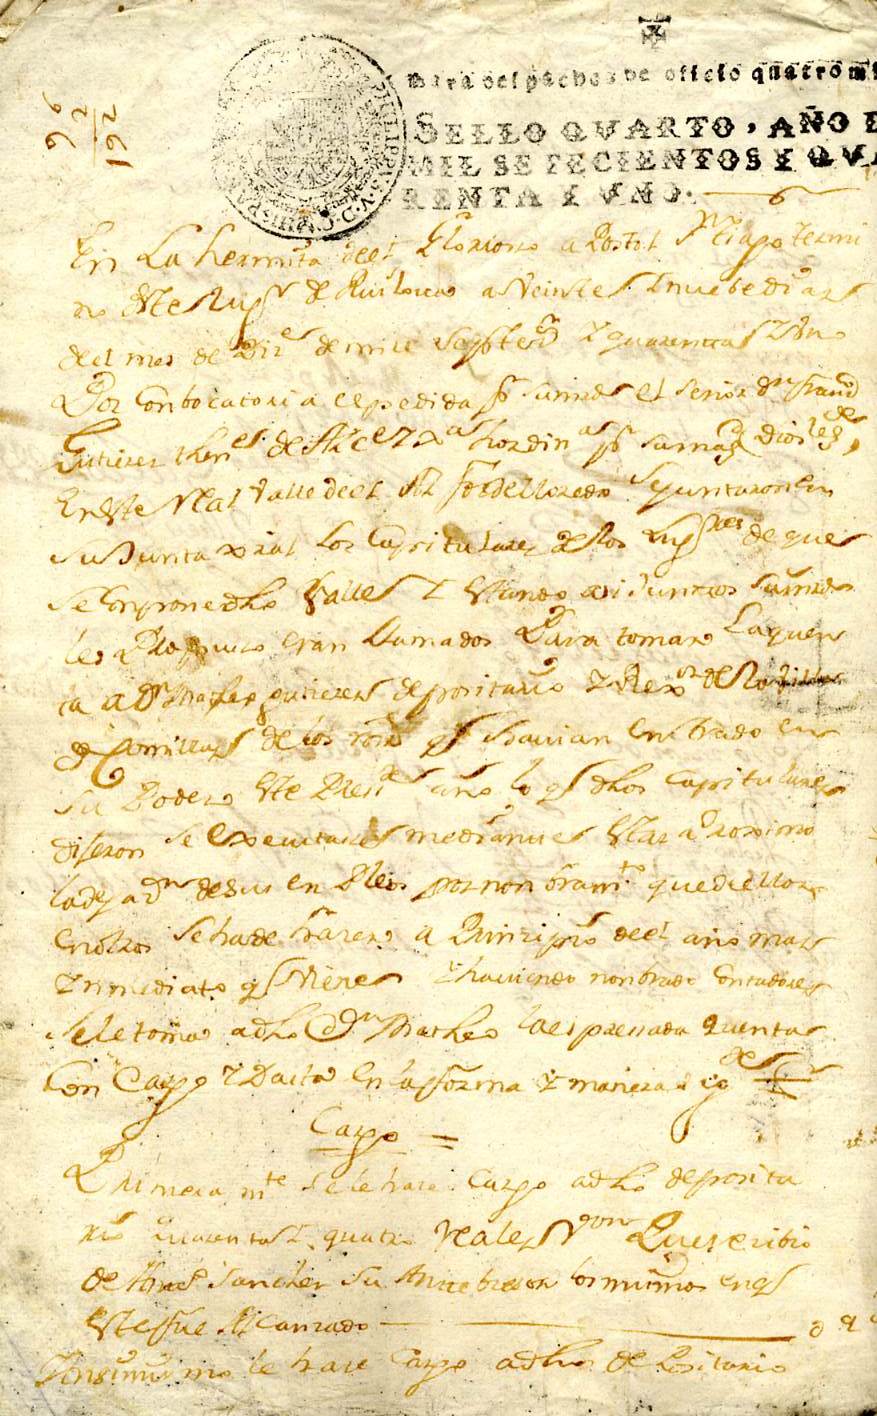 96
2
192
PHILIPPVS V D G HISPA
Para despachos de oficio quatro m
SELLO QVARTO, AÑO D
MIL SETECIENTOS Y QVA
RENTA Y VNO.
En La hermita deel Glorioso apostol Santiago termi
no deste Lugr de Ruiloua a Veinte y nuebe dias
del mes de Dize de mill Setezs y quarenta y Vno
Por Conbocatoria espedida pr su mrd el señor Dn Francco
Gutierrez thente de Alce y as hordinas pr su magd Dios le ge
En este Real Valle deel de Se juntaron en
su Junta xral los Capitulares de los Lugres de que
se Conpone dho Valle y estando asi Juntos su mrd
les Propuso eran llamados Para tomar La quen
ta a Dn Matheo gutierrez depositario y Rexor de
de Comillas de los que auian entrado en
su Poder este Presente año lo q dhos Capitulares
dijeron se executase mediante estar proximo
la dejaon de sus enPleos por nonbramto que de ellos
en otros se ha de hazer a Prinzipio deel año mas
ynmediato q Viene Y hauiendo nonbrado Contadores
se le tomo a dho Dn Matheo la espresada quenta
Con Cargo y Data en la forma y manera sigte
Cargo =
Primera mte se le haze Cargo a dho deposita
rio quarenta y quatro reales Von Que reciuio
de Sanchez su Antezesor los mismos en q
este fue Alcanzado
Ansimismo le haze Cargo a dho depositario